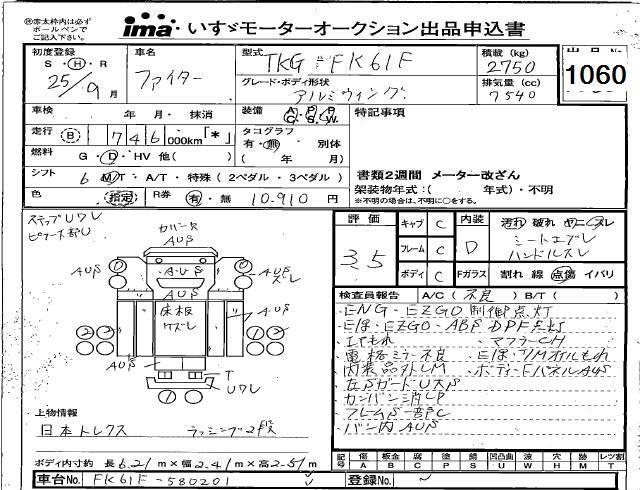 ㊟赤太枠内は必ず
ボールペンで
ご記入下さい。
ima いすゞモーターオークション出品申込書
初度登録 車名 型式 TKG-FK61F 積載 (kg) 出品No.
S・H・R 25/9月 ファイター グレード・ボディ形状 2750 1060
アルミウィング 排気量 (cc) 7540
車検 年・月・抹消 装備 A/C P/S P/W 特記事項
走行 B 746,000km「*」 タコグラフ 有・無 別体
燃料 G・D・HV 他( ) ( 年 月)
シフト 6 M/T・A/T・特殊 (2ペダル・3ペダル) 書類2週間 メーター改ざん
色 指定 R券 有・無 10.910 円 架装物年式:( 年式)・不明
※不明の場合は、不明に○をする。
ステップUワレ
ピラー ス部U
カバー欠
AUS
AUSワレ
A・U・S
床板
ケズレ
AUS
T
Uワレ
評価 3.5
キャブ C 内装 D 汚れ 破れ ヤニ スレ
フレーム C シートエプレ
ハンドルスレ
ボディ C Fガラス 割れ 線 点傷 イバリ
検査員報告 A/C( 不良 ) B/T( )
・ENG・EZGO制御点灯
・E/B・EZGO・ABS DPF点灯
・エアもれ ・マフラーCH
・電格ミラー不良 ・E/B・T/Mオイルもれ
・内装品外しM ・ボディーFパネルAUS
・左SガードU大S
・カンバン消しP
・フレームS一部C
・バン内AUS
上物情報
日本トレクス ラッシング2段
ボディ内寸約 長6.21m×幅2.41m×高2.51m
記号 傷A 板金B 腐C 塗P 錆S 凹凸曲U 波W 穴H 跡M レツ割T
車台No. FK61F-580201 登録No. ~